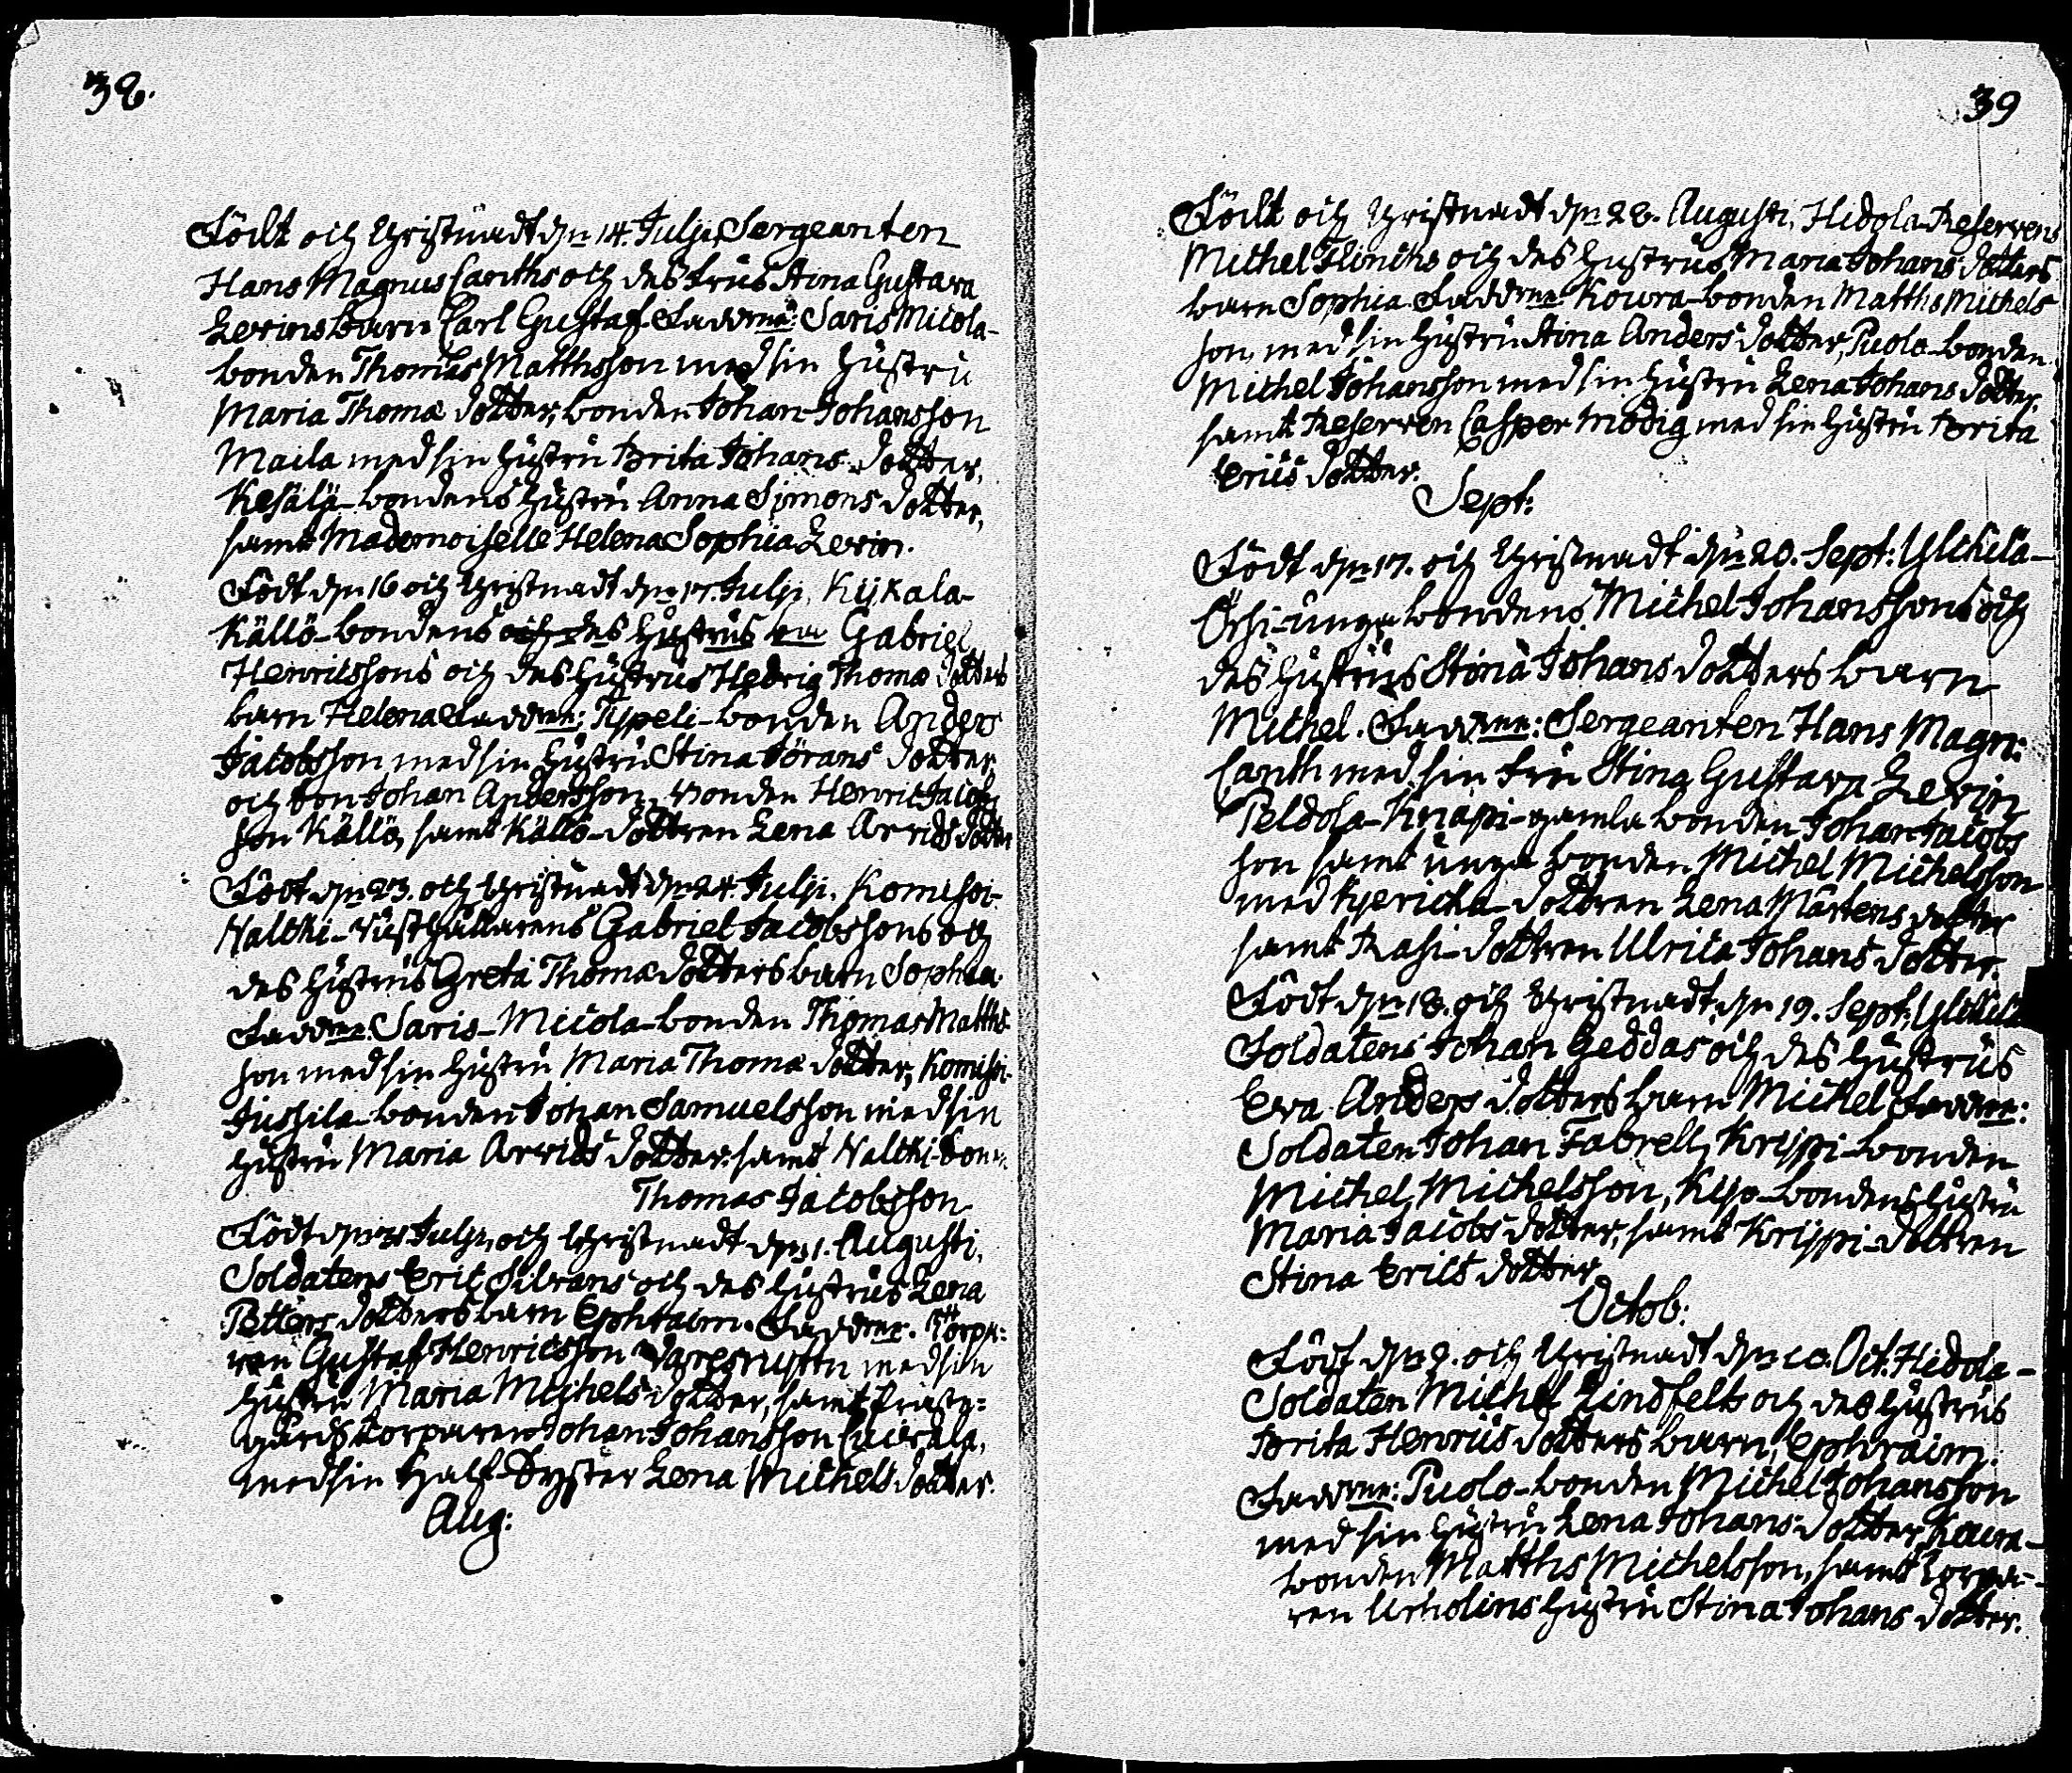 38.
Födt och Christnadt dn 14. Julji, Sergeanten
Hans Magnus Canths och des frus Stina Gustava
Levins barn Carl Gustaf. Faddrar: Saris Micola-
bonden Thomas Matthsson med sin hustru
Maria Thomæ dotter, bonden Johan Johansson
Maila med sin hustru Brita Johans dotter,
Kesälä-bondens hustru Anna Simons dotter,
samt Mademoiselle Helena Sophia Levin.
Födt dn 16 och Christnadt dn 17. Julji, Kijkala-
Källö-bondens och des hustrus Gabriel
Henricssons och des hustrus Hedvig Thomæ dotters
barn Helena. Faddrar: Typeli-bonden Anders
Jacobsson med sin hustru Stina Jörans dotter
och son Johan Andersson, bonden Henric Jacobs
son Källö, samt Källö-dottren Lena Arvids dotter
Födt dn 23. och Christnadt dn 24. Julji. Komissi-
Naltki-rusthållarens Gabriel Jacobssons och
des hustrus Greta Thomæ dotters barn Sophia
Faddrar: Saris-Micola-bonden Thomas Matths-
son med sin hustru Maria Thomæ dotter, Komissi-
Jussila-bonden Johan Samuelsson med sin
hustru Maria Arvids dotter, samt Naltki-sonen
Thomas Jacobsson
Födt dn 31 Julji, och Christnadt dn 1. Augusti,
Soldatens Eric Silvans och des hustrus Lena
Petters dotters barn Ephraim. Faddrar. Torpa-
ren Gustaf Henricsson med sin
hustru Maria Michels dotter, samt präste-
gårds torparen Johan Johansson
med sin Half-Syster Lena Michels dotter.
Aug:
39
Födt och Christnadt dn 28. Augusti, Hidola-Reservens
Michel Flincks och des hustrus Maria Johans dotters
barn Sophia. Faddrar Kowra-bonden Matths Michels
son, med sin hustru Stina Anders dotter, Puola-bonden
Michel Johansson med sin hustru Lena Johans dotter,
samt Reserven Casper Modig med sin hustru Brita
Erics dotter.
Sept:
Födt dn 17. och Christnadt dn 20. Sept: Ylikila-
Örhi-unga bondens Michel Johanssons och
des hustrus Stina Johans dotters barn
Michel. Faddrar: Sergeanten Hans Magn:
Canth med sin fru Stina Gustava Levin,
Peldola-Knapi-gamla bonden Johan Jacobs
son samt unga bonden Michel Michelsson
med dottren Lena Mårtens dotter
samt Rasi-dottren Ulrica Johans dotter.
Födt dn 18. och Christnadt dn 19. Sept: Ylikila
Soldatens Johan Geddas och des hustrus
Eva Anders dotters barn Michel. Faddrar:
Soldaten Johan Fabrell, Krÿppi-bonden
Michel Michelsson, Kijo-bondens hustru
Maria Jacobs dotter, samt Krÿppi-dottren
Stina Erics dotter
Octob:
Födt dn 9. och Christnadt dn 10. Oct. Hidola-
Soldaten Michel Lindfelts och des hustrus
Brita Henrics dotters barn, Ephraim.
Faddrar: Puolo-bonden Michel Johansson
med sin hustru Lena Johans dotter, Kowra-
bonden Matths Michelsson, samt Torpa-
ren hustru Stina Johans dotter.